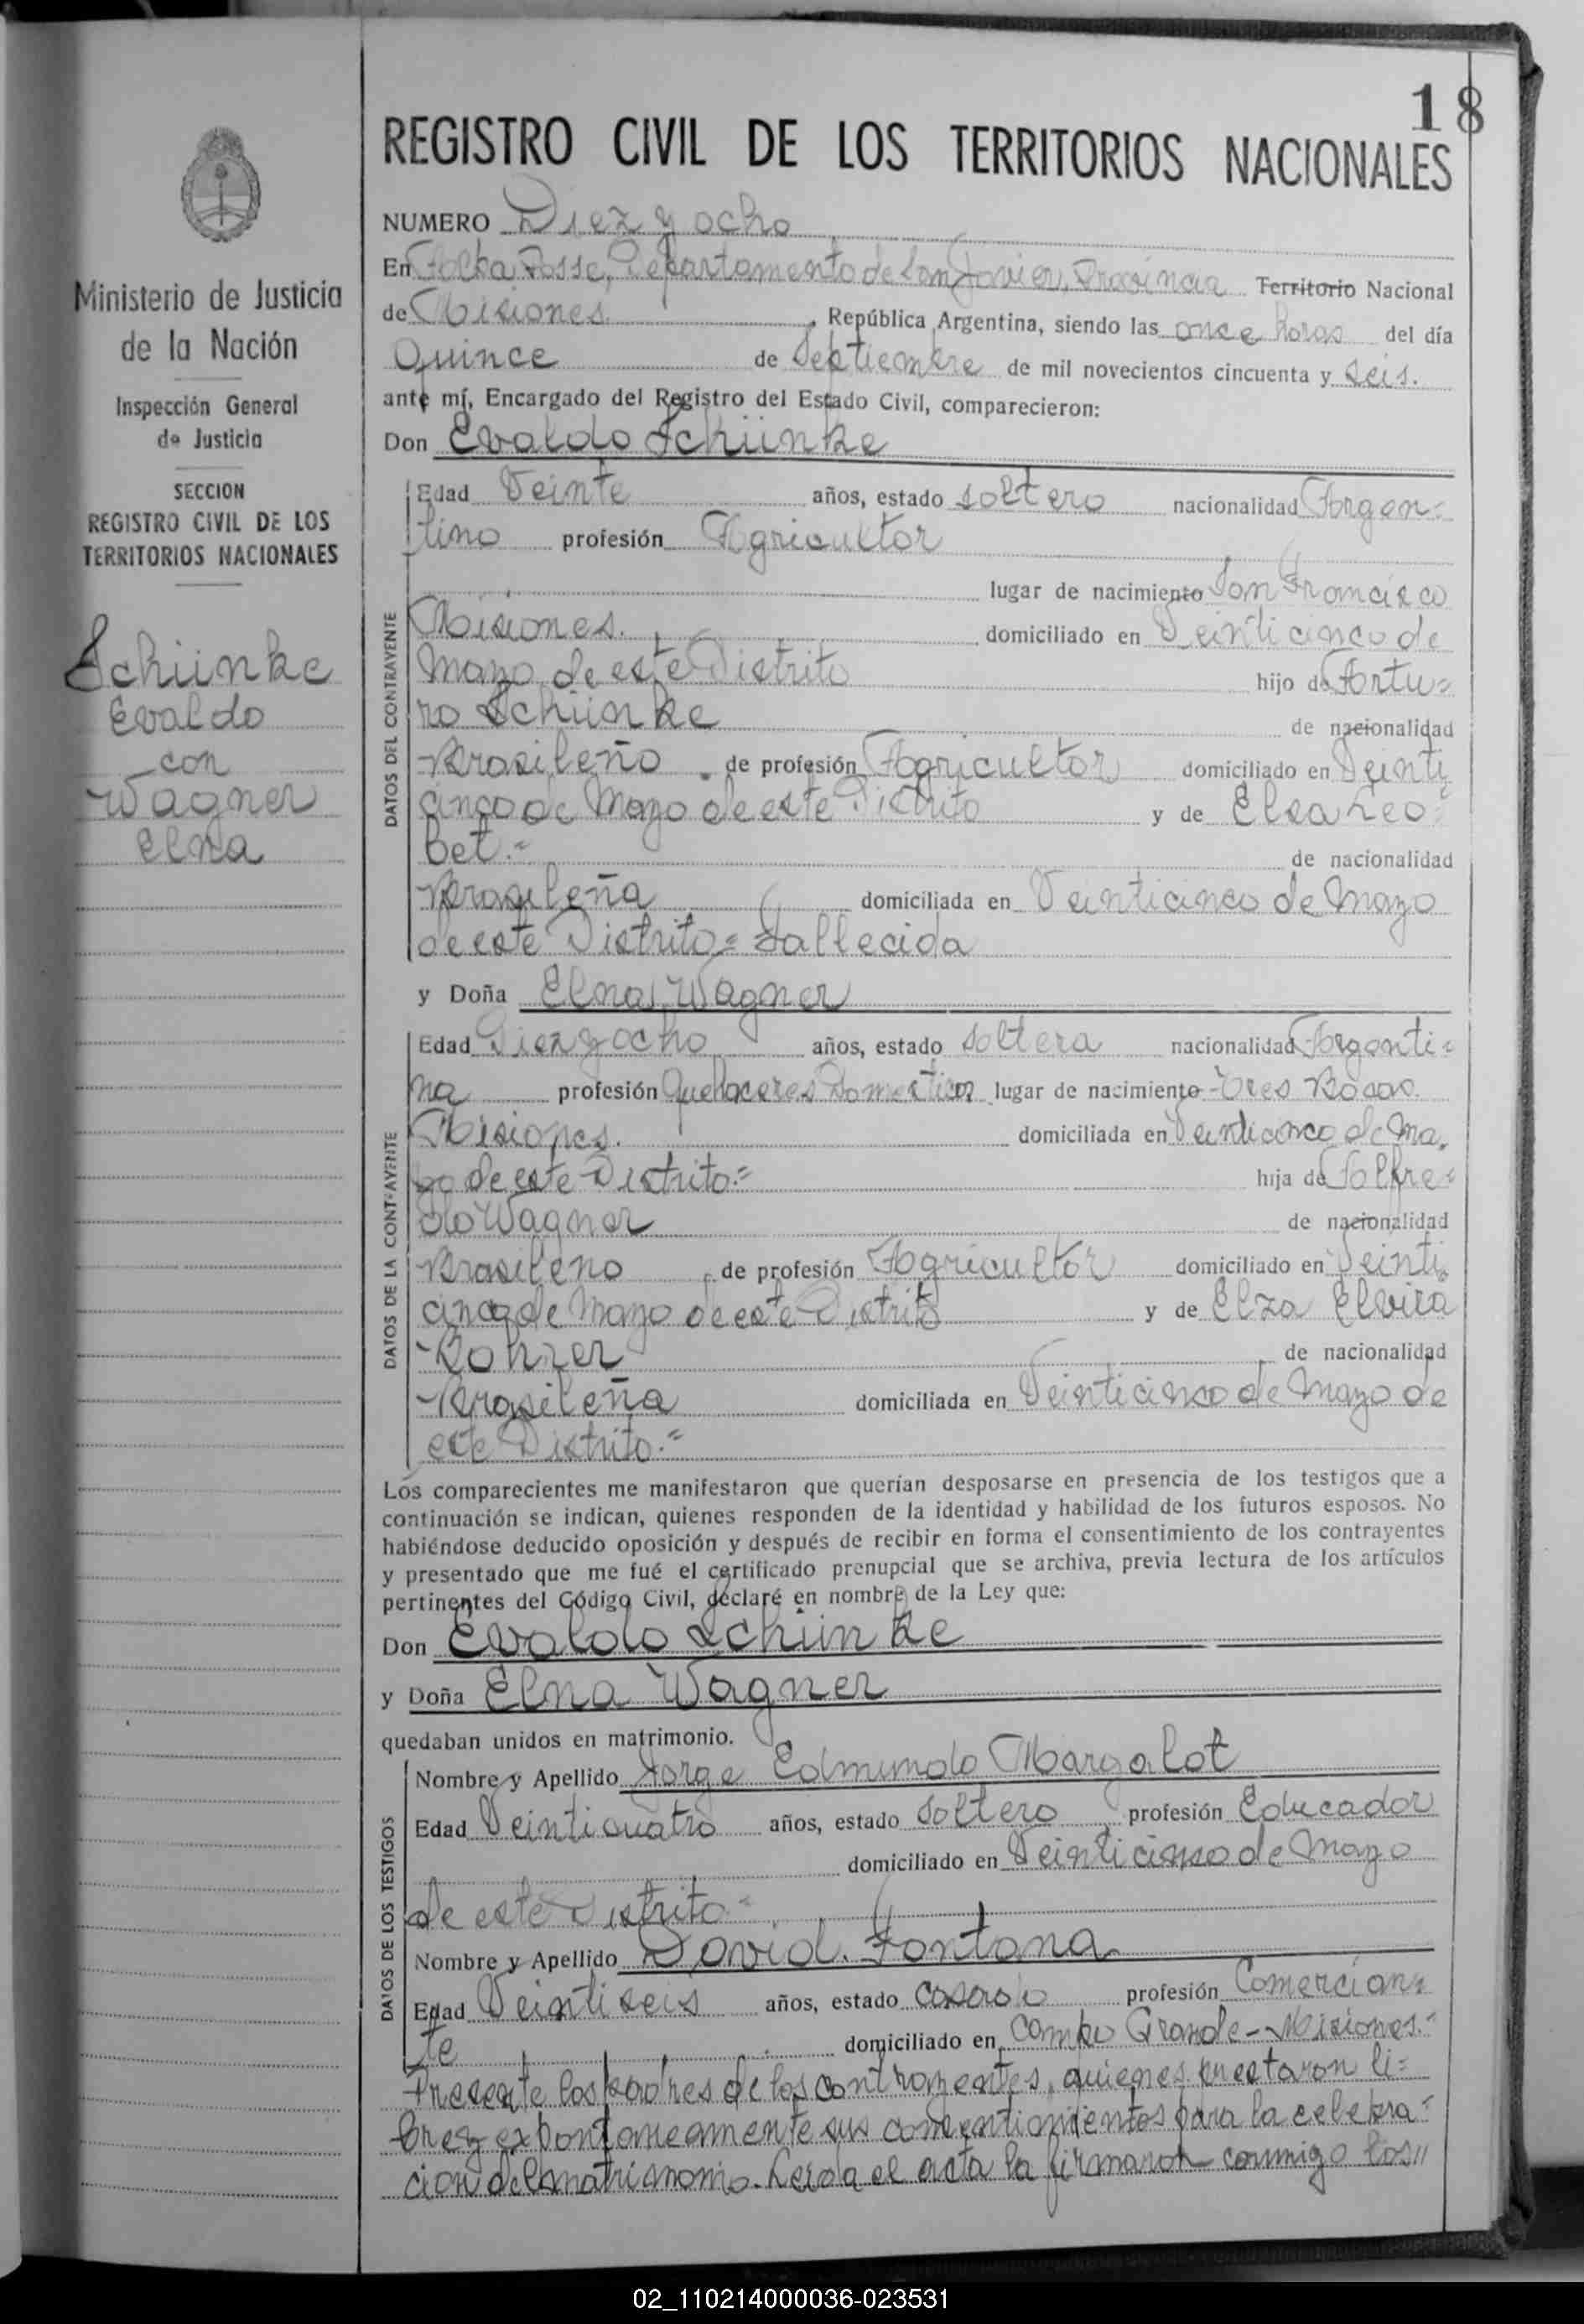 18
REGISTRO CIVIL DE LOS TERRITORIOS NACIONALES
Ministerio de Justicia
de la Nación
Inspección General
de Justicia
SECCION
REGISTRO CIVIL DE LOS
TERRITORIOS NACIONALES
Schünke
Evaldo
con
Wagner
Elna
NUMERO Diez y ocho
En Alba Posse, Departamento de San Javier, Provincia Territorio Nacional
de Misiones, República Argentina, siendo las once horas del día
Quince de Septiembre de mil novecientos cincuenta y seis.
ante mí, Encargado del Registro del Estado Civil, comparecieron:
Don Evaldo Schünke
DATOS DEL CONTRAYENTE
Edad Veinte años, estado soltero nacionalidad Argen=
tino profesión Agricultor
lugar de nacimiento San Francisco
Misiones. domiciliado en Veinticinco de
Mayo de este Distrito hijo de Artu=
ro Schünke de nacionalidad
Brasileño de profesión Agricultor domiciliado en Veinti
cinco de Mayo de este Distrito y de Elsa Leo=
bet.= de nacionalidad
Brasileña domiciliada en Veinticinco de Mayo
de este Distrito= Fallecida
y Doña Elna Wagner
DATOS DE LA CONTRAYENTE
Edad Diez y ocho años, estado soltera nacionalidad Argenti=
na profesión Quehaceres Domesticos lugar de nacimiento Tres Bocas
Misiones. domiciliada en Veinticinco de Ma,
yo de este Distrito.= hija de Alfre=
do Wagner de nacionalidad
Brasileno de profesión Agricultor domiciliado en Veinti
cinco de Mayo de este Distrito y de Elza Elvira
Rohrer de nacionalidad
Brasileña domiciliada en Veinticinco de Mayo de
este Distrito.=
Los comparecientes me manifestaron que querían desposarse en presencia de los testigos que a
continuación se indican, quienes responden de la identidad y habilidad de los futuros esposos. No
habiéndose deducido oposición y después de recibir en forma el consentimiento de los contrayentes
y presentado que me fué el certificado prenupcial que se archiva, previa lectura de los artículos
pertinentes del Código Civil, declaré en nombre de la Ley que:
Don Evaldo Schünke
y Doña Elna Wagner
quedaban unidos en matrimonio.
DATOS DE LOS TESTIGOS
Nombre y Apellido Jorge Edmundo Margalot
Edad Veinticuatro años, estado Soltero profesión Educador
domiciliado en Veinticinco de Mayo
de este Distrito=
Nombre y Apellido David Fontana
Edad Veintiseis años, estado casado profesión Comercian=
te domiciliado en Campo Grande-Misiones.=
Presente los padres de los contrayentes, quienes prestaron li=
bre y expontaneamente sus consentimientos para la celebra=
cion del matrimonio. Leida el acta la firmaron conmigo los//
02_110214000036-023531